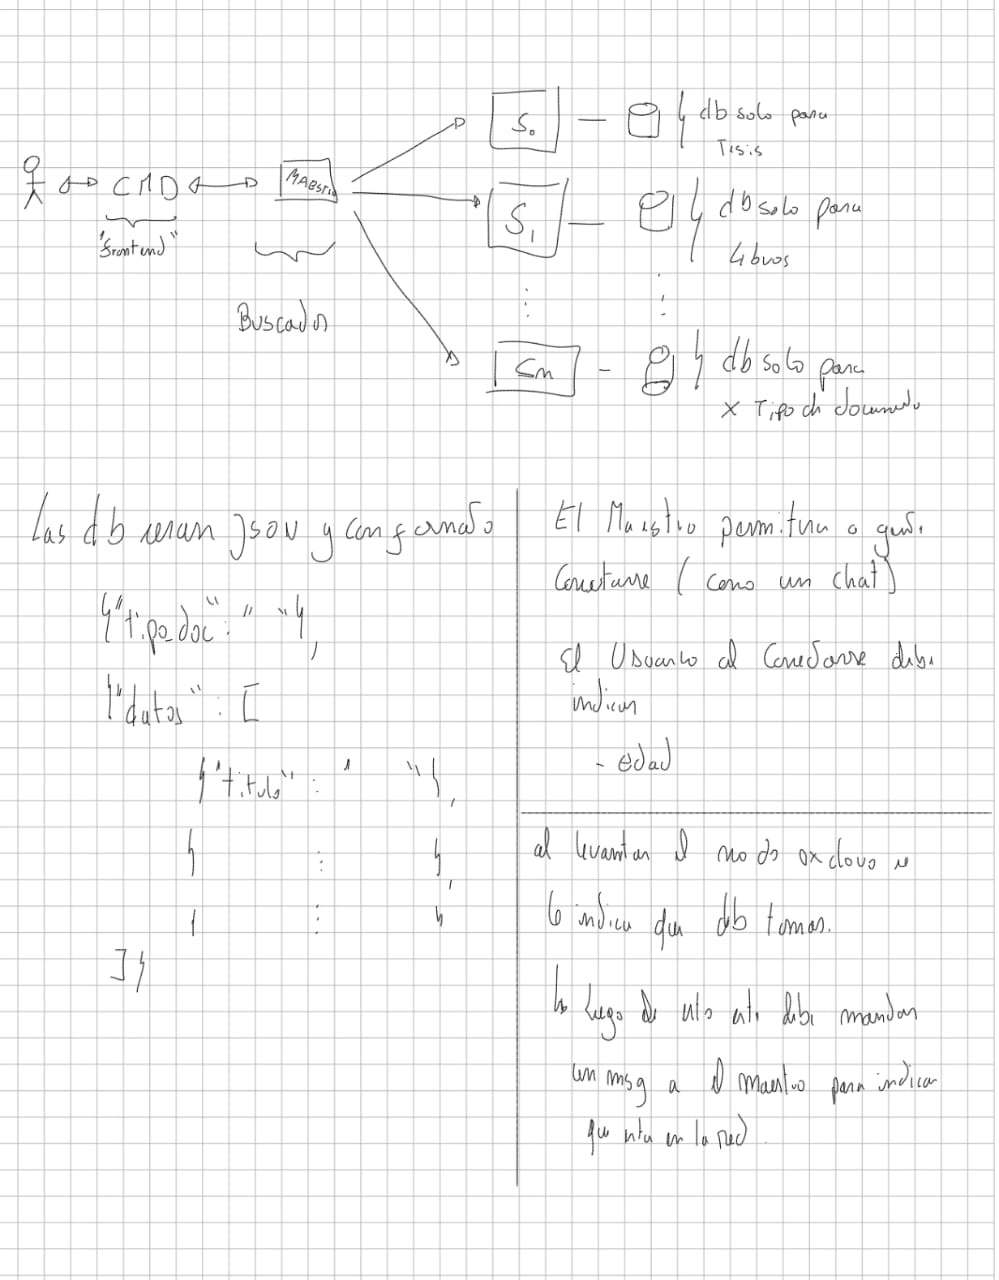 S0
db solo para
Tesis
CMD
Maestro
"frontend"
S1
db solo para
Libros
Buscador
Sn
db solo para
X Tipo de documento
Las db seran JSON y con formato
{"tipo_doc": " "},
{"datos": [
{"titulo": " "},
{ : },
{ : }
]}
El Maestro permitira a
Conectarse (como un chat)
El Usuario al Conectarse debe
indicar
- edad
al levantar el nodo esclavo se
le indica que db tomar.
↳ Luego de esto este debe mandar
un msg a el maestro para indicar
que esta en la red.